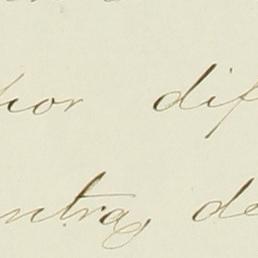 por dif
ntra, de